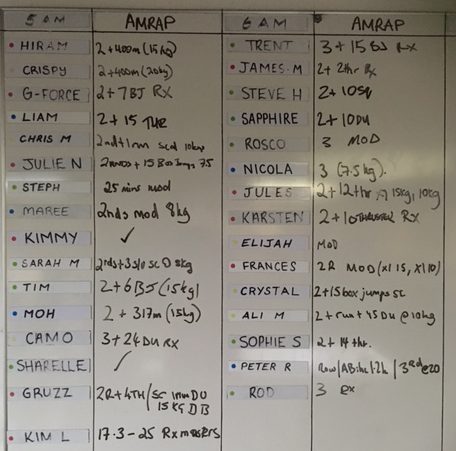 5 AM AMRAP
HIRAM 2+400m (15kg)
CRISPY 2+400m (20kg)
G-FORCE 2+7BJ Rx
LIAM 2+15 THR
CHRIS M 2nd+1 scd 10kg
JULIE N 2RNDS+15 Box Jumps 7.5
STEPH 25 mins mod
MAREE 2nds mod 8kg
KIMMY ✓
SARAH M 2rds+ sc 8kg
TIM 2+6BJ (15kg)
MOH 2+317m (15kg)
CAMO 3+24DU Rx
SHARELLE ✓
GRUZZ 2R+4TH/SC DU
15KG DB
KIM L 17.3-25 Rx masters
6 AM AMRAP
TRENT 3+15BJ Rx
JAMES.M 2+2thr Rx
STEVE H 2+10SQ
SAPPHIRE 2+10DU
ROSCO 3 MOD
NICOLA 3 (7.5kg).
JULES 2+12thr 15kg, 10kg
KARSTEN 2+10THRUSTER RX
ELIJAH MOD
FRANCES 2R MOD (X115, X110)
CRYSTAL 2+15box jumps sc
ALI M 2+run+45DU @10kg
SOPHIE S 2+14thr.
PETER R Row/ABike/
ROD 3 Rx